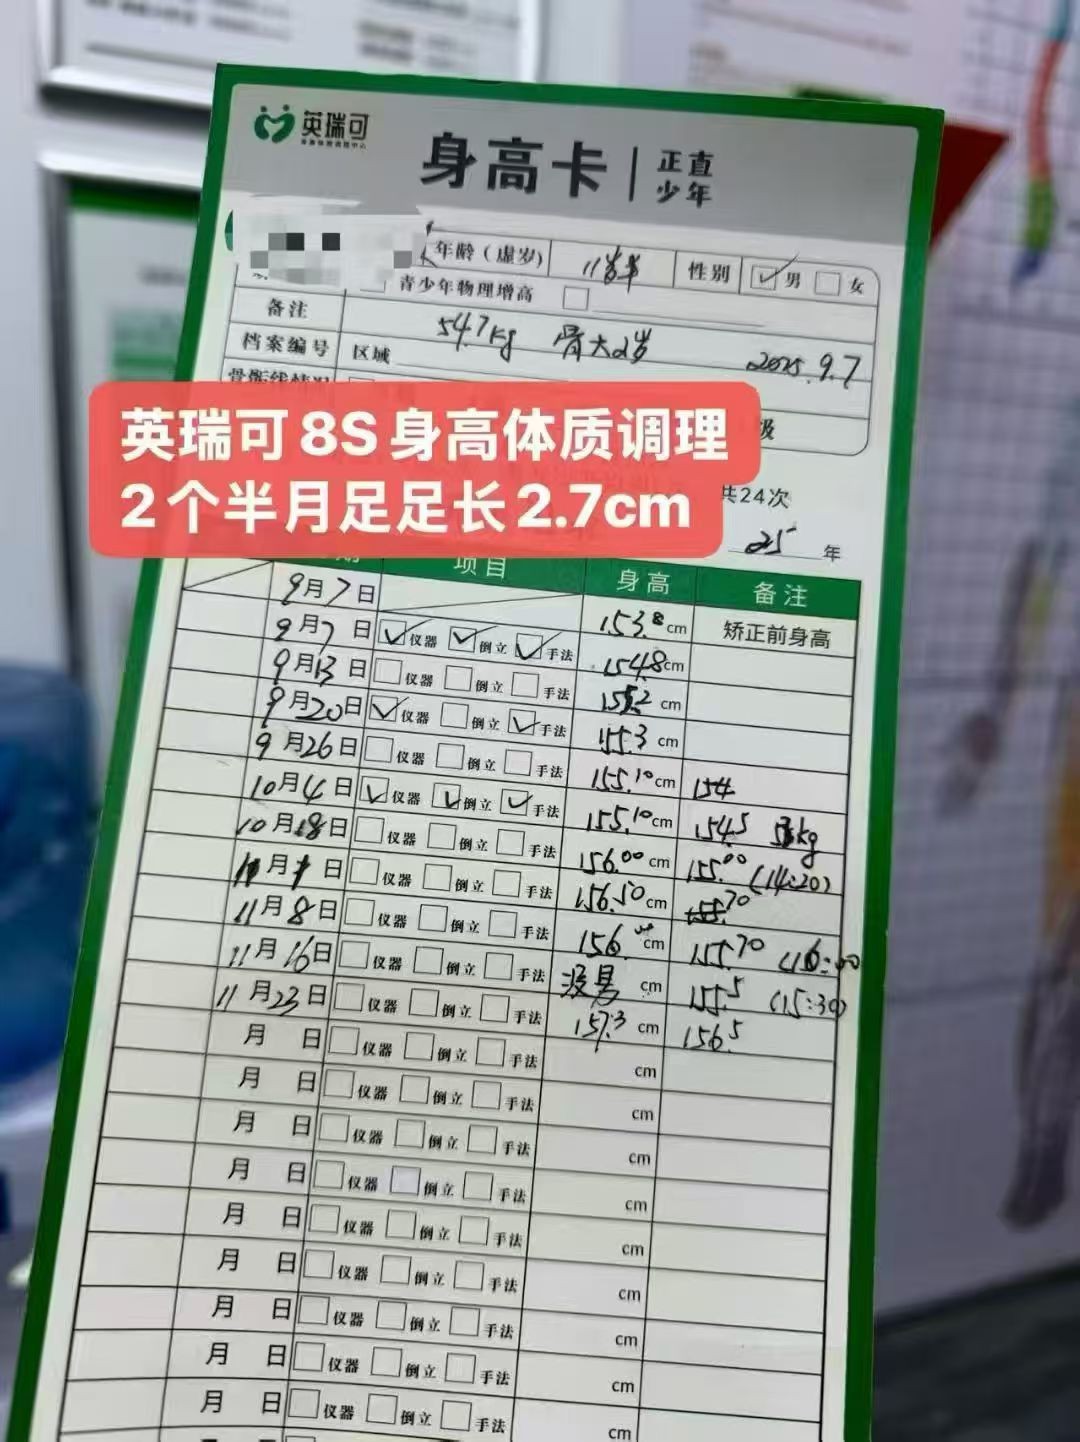 英瑞可
身高卡 正直少年
年龄（虚岁） 11岁半 性别 ☑男 □女
青少年物理增高 □
备注 54.7kg 骨大2岁 2025.9.7
档案编号 区域
英瑞可8S身高体质调理
2个半月足足长2.7cm
级
共24次
25年
项目 身高 备注
9月7日 153.8cm 矫正前身高
9月7日 ☑仪器 ☑倒立 ☑手法 154.8cm
9月13日 □仪器 □倒立 □手法 155.2cm
9月20日 ☑仪器 □倒立 ☑手法 155.3cm
9月26日 □仪器 □倒立 □手法 155.10cm 154
10月4日 ☑仪器 ☑倒立 ☑手法 155.10cm 154.5 kg
10月18日 □仪器 □倒立 □手法 156.00cm 155.00 (14:20)
11月1日 □仪器 □倒立 □手法 156.50cm 155.70
11月8日 □仪器 □倒立 □手法 156. cm 155.70 (16:00
11月16日 □仪器 □倒立 □手法 没量 cm 155.5 (15:30)
11月23日 □仪器 □倒立 □手法 157.3cm 156.5
月 日 □仪器 □倒立 □手法 cm
月 日 □仪器 □倒立 □手法 cm
月 日 □仪器 □倒立 □手法 cm
月 日 □仪器 □倒立 □手法 cm
月 日 □仪器 □倒立 □手法 cm
月 日 □仪器 □倒立 □手法 cm
月 日 □仪器 □倒立 □手法 cm
月 日 □仪器 □倒立 □手法 cm
月 日 □仪器 □倒立 □手法 cm